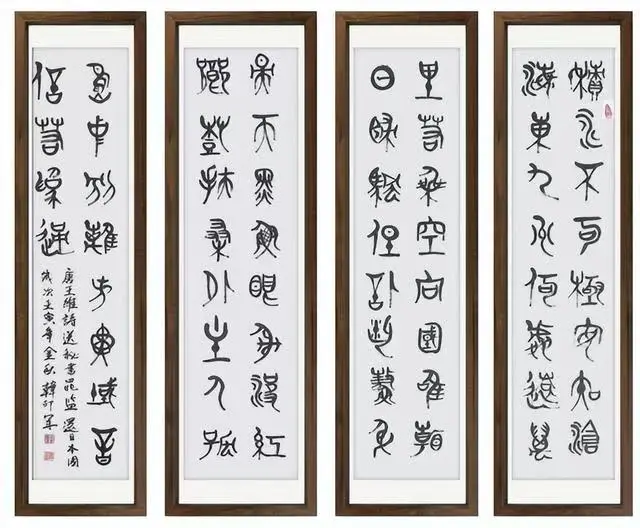 積水不可極安知滄
海東九州何處遠萬
里若乘空向國唯看
日歸帆但信風鰲身
映天黑魚眼射波紅
鄉樹扶桑外主人孤
島中別離方異域音
信若為通
唐王維詩送秘書晁監還日本国
歲次壬寅年金秋韓印軍